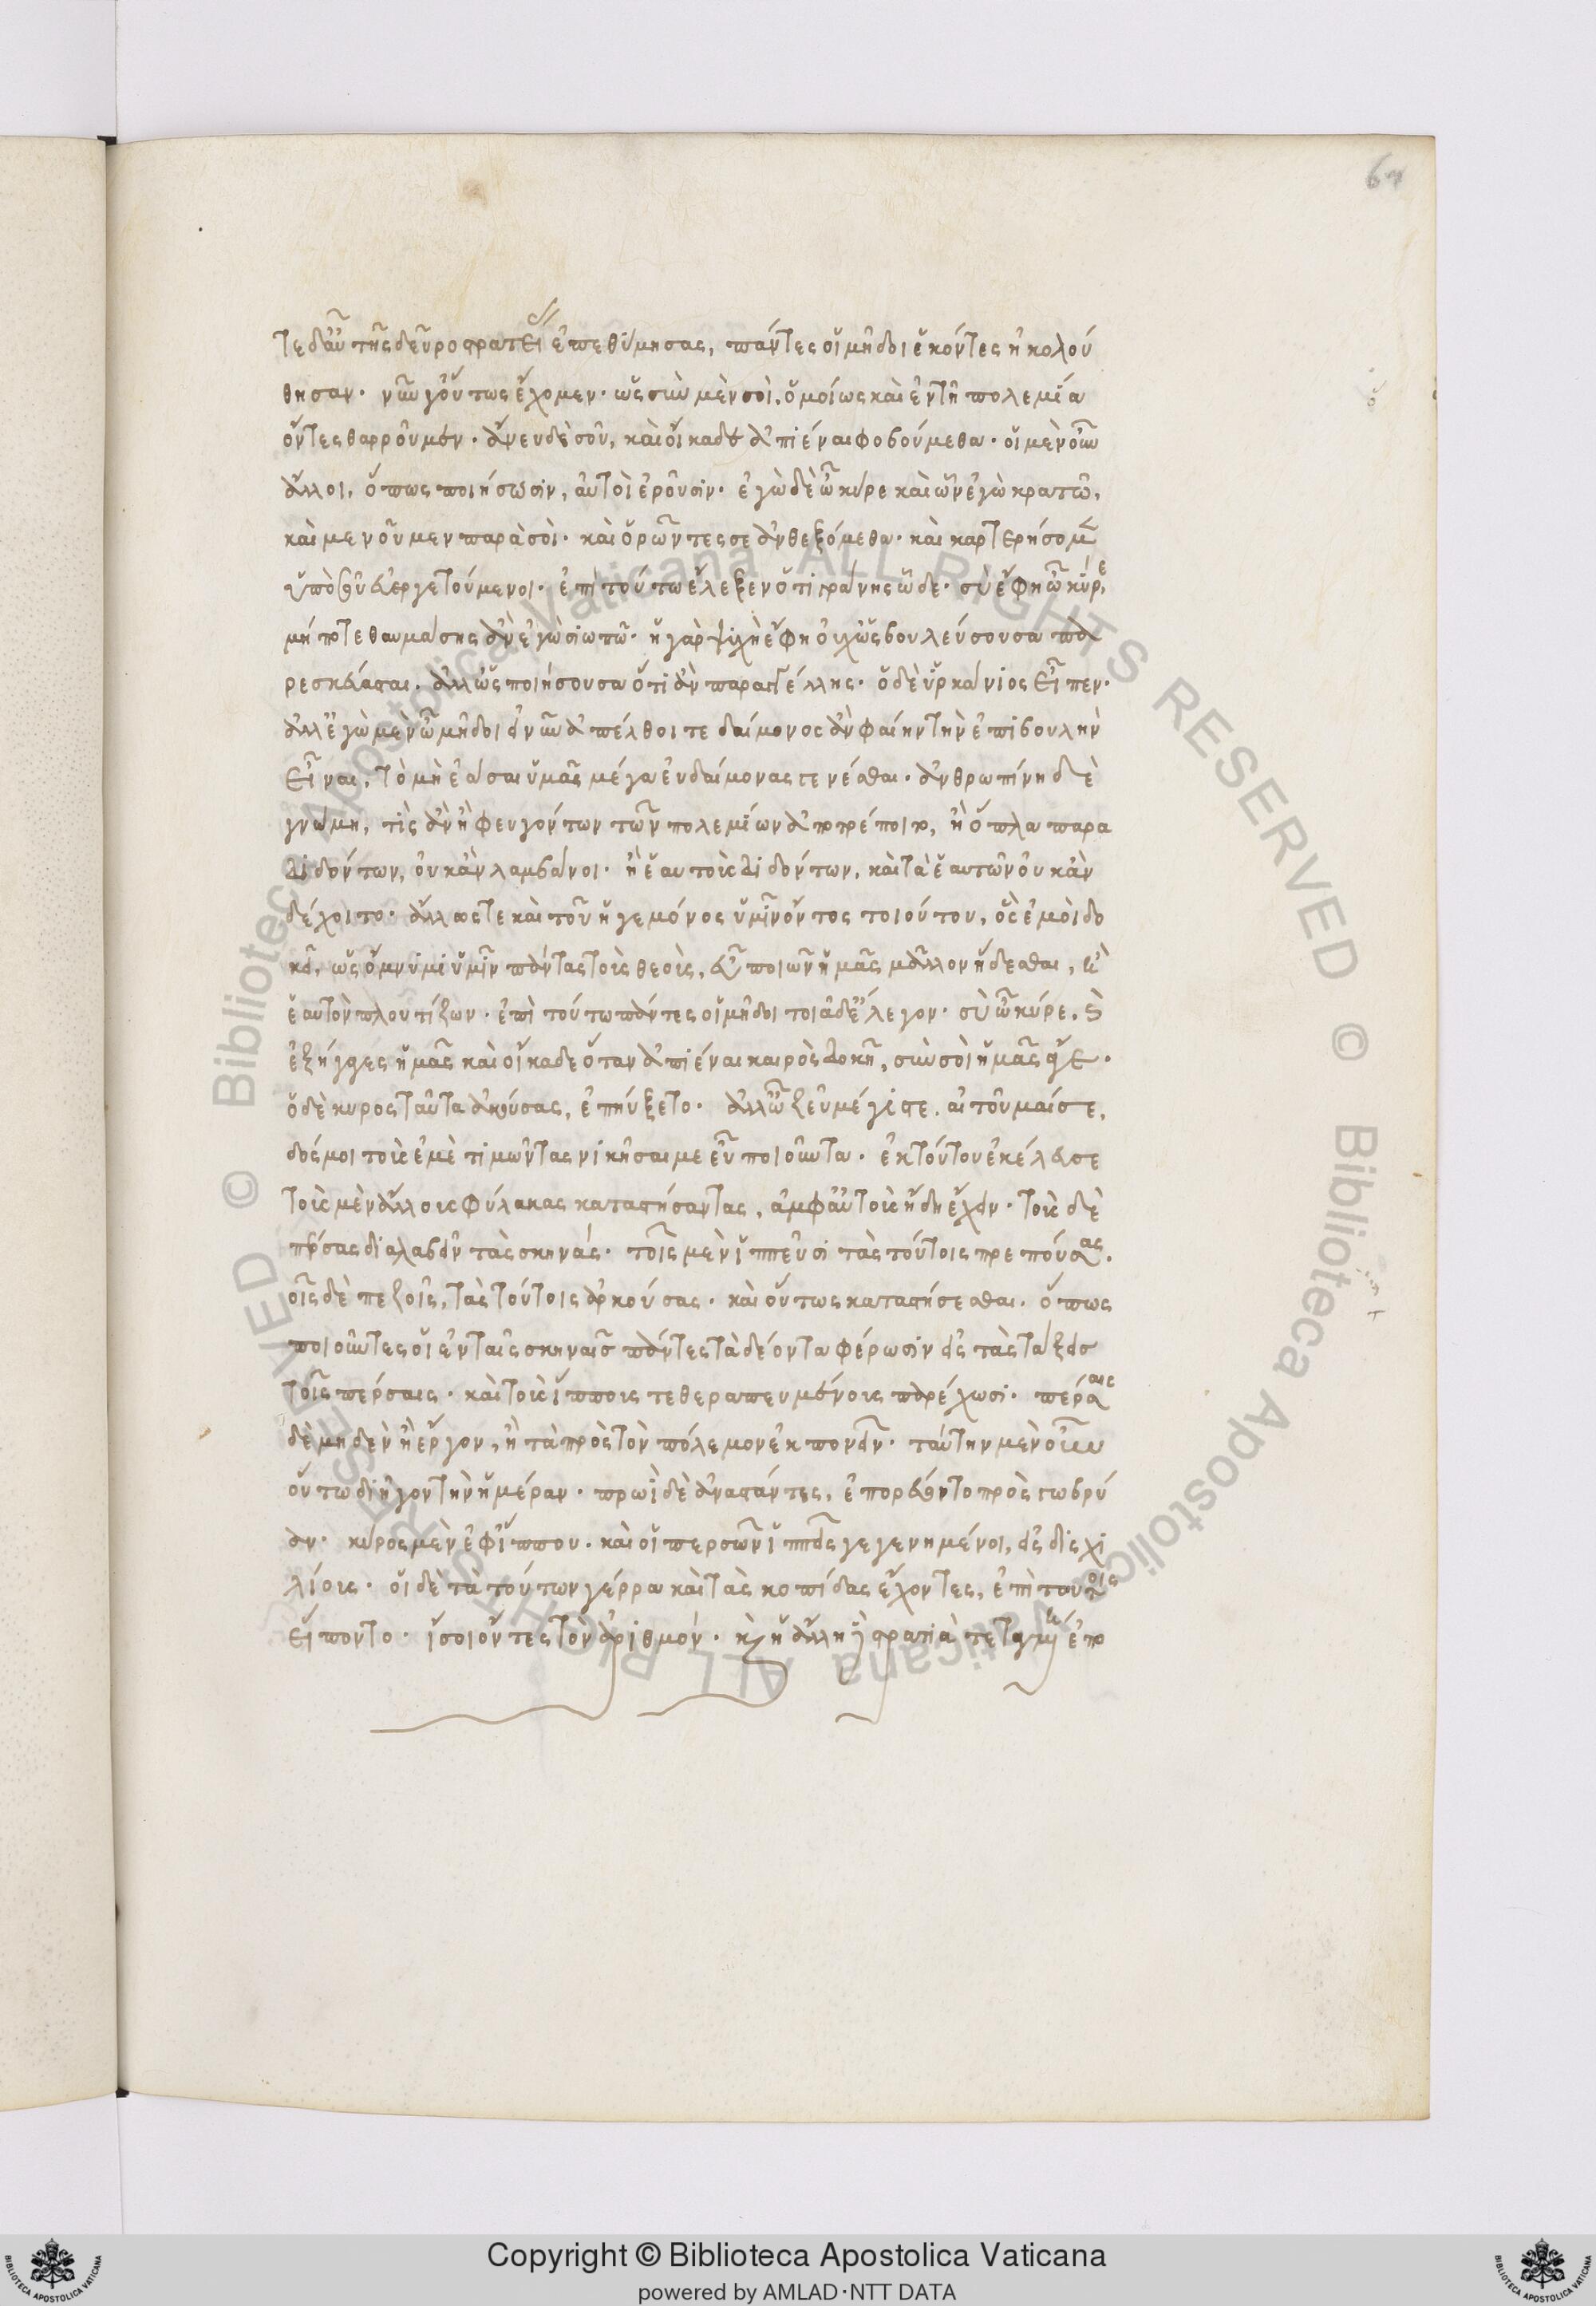 67
τεδαῦ τῆςδεῦροστρατεί ἐπεθύμησας, πάντες οἱ μῆδοι ἑκόντες ἠκολού
θησαν· νῦν γ' οὕτως ἔχομεν· ὡς σὺν μὲν σοὶ, ὁμοίως καὶ ἐν τῆ πολεμία
ὄντες θαρροῦμεν· ἄνευ δὲ σοῦ, καὶ οἴκαδε ἀπιέναι φοβούμεθα· οἱ μὲν οὖν
ἄλλοι, ὅπως ποιήσωσιν, αὐτοὶ ἐροῦσιν· ἐγὼ δὲ ὦ κύρε καὶ ὧν ἐγὼ κρατῶ,
καὶ μενοῦμεν παρὰ σοὶ· καὶ ὁρῶντες σε ἀνθεξόμεθα· καὶ καρτερήσομ
ὑπὸ σοῦ εὐεργετούμενοι· ἐπὶ τούτω ἔλεξεν ὁ τιγράνης ὧδε· σὺ ἔφη ὦ κύρε,
μήποτε θαυμάσης ἂν ἐγὼ σιωπῶ· ἡ γὰρ ψυχὴ ἔφη οὐχ ὡς βουλεύσουσα πα
ρεσκεύασται. ἀλλ' ὡς ποιήσουσα ὅτι ἂν παραγγέλλης· ὁ δὲ ὑρκάνιος εἶπεν·
ἀλλ' ἐγὼ μὲν ὦ μῆδοι εἰ νῦν ἀπέλθοιτε δαίμονος ἂν φαίην τὴν ἐπιβουλὴν
εἶναι, τὸ μὴ ἐάσαι ὑμᾶς μέγα εὐδαίμονας γενέσθαι· ἀνθρωπίνη δὲ
γνώμη, τίς ἂν ἢ φευγόντων τῶν πολεμίων ἀποτρέποιτο, ἢ ὅπλα παρα
διδόντων, οὐκ ἂν λαμβάνοι· ἢ ἑαυτοὺς διδόντων, καὶ τὰ ἑαυτῶν οὐκ ἂν
δέχοιτο· ἄλλως τε καὶ τοῦ ἡγεμόνος ὑμῖν ὄντος τοιούτου, ὃς ἐμοὶ δο
κεῖ, ὡς ὄμνυμι ὑμῖν πάντας τοὺς θεοὺς, εὖ ποιῶν ἡμᾶς μᾶλλον ἥδεσθαι, ἢ
ἑαυτὸν πλουτίζων· ἐπὶ τούτω πάντες οἱ μῆδοι τοιάδ' ἔλεγον· σὺ ὦ κύρε,
ἐξήγαγες ἡμᾶς καὶ οἴκαδε ὅταν ἀπιέναι καιρὸς δοκῆ, σὺν σοὶ ἡμᾶς ἄγε.
ὁ δὲ κυρος ταῦτα ἀκούσας, ἐπηύξετο· ἀλλ' ὦ ζεῦ μέγιστε. αἰτοῦμαί σε,
δός μοι τοὺς ἐμὲ τιμῶντας νικῆσαι με εὖ ποιοῦντα· ἐκ τούτου ἐκέλευσε
τοὺς μὲν ἄλλους φύλακας καταστήσαντας, ἀμφ' αὑτοὺς ἤδη ἔχειν· τοὺς δὲ
πέρσας διαλαβεῖν τὰς σκηνάς· τοῖς μὲν ἱππεῦσι τὰς τούτοις πρεπούσας.
οῖς δὲ πεζοῖς, τὰς τούτοις ἀρκούσας· καὶ οὕτως καταστήσεσθαι. ὅπως
ποιοῦντες οἱ ἐν ταῖς σκηναῖς πάντες τὰ δέοντα φέρωσιν εἰς τὰς τάξεις
τοῖς πέρσαις· καὶ τοὺς ἵππους τεθεραπευμένους παρέχωσι· πέρσαις
δὲ μηδὲν ἢ ἔργον, ἢ τὰ πρὸς τὸν πόλεμον ἐκπονεῖν· ταύτην μὲν οὖν
οὕτω διῆγον τὴν ἡμέραν· πρωῒ δὲ ἀναστάντες, ἐπορεύοντο πρὸς γωβρύ
αν· κύρος μὲν ἐφ' ἵππου. καὶ οἱ περσῶν ἱππεῖς γεγενημένοι, εἰς δισχι
λίους· οἱ δὲ τὰ τούτων γέρρα καὶ τὰς κοπίδας ἔχοντες, ἐπὶ τούτοις
εἵποντο· ἴσοι ὄντες τὸν ἀριθμόν· καὶ ἡ ἄλλη στρατιὰ τεταγμένη ἐπο
Copyright © Biblioteca Apostolica Vaticana
powered by AMLAD·NTT DATA